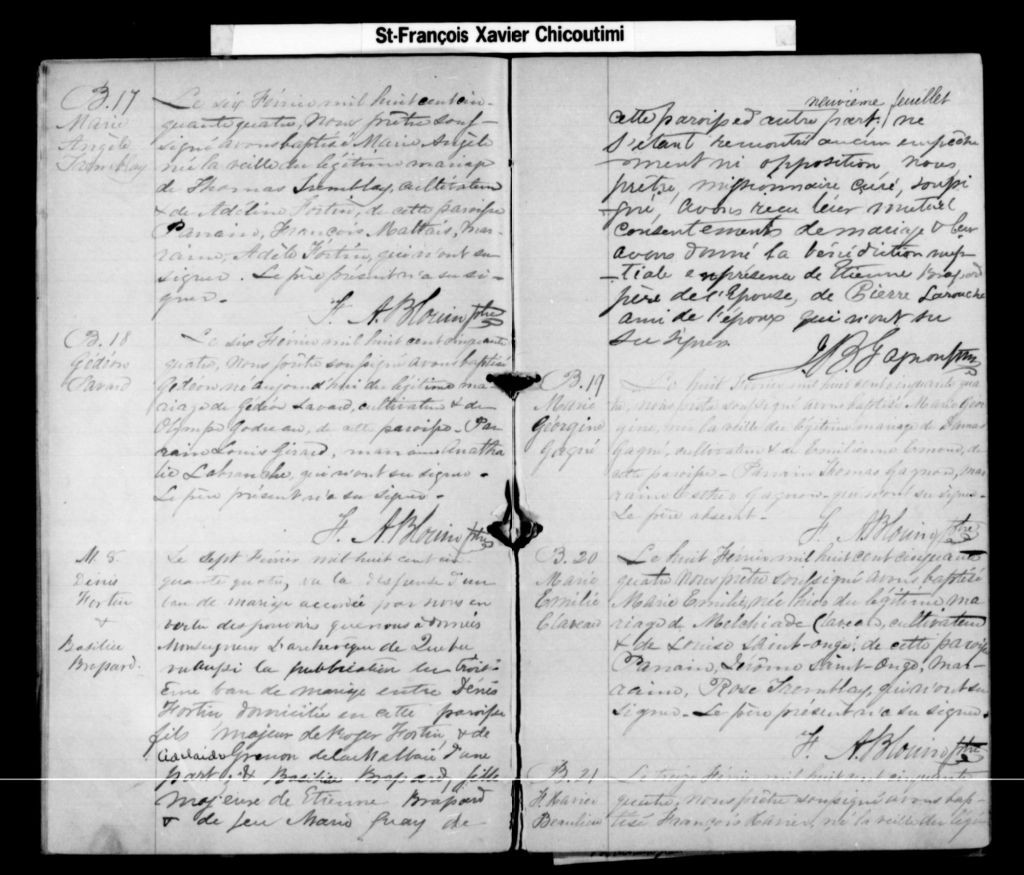 St-François Xavier Chicoutimi
B.17
Marie
Angèle
Tremblay
Le six Février mil huit cent cin-
quante quatre, Nous prêtre sous-
signé avons baptisé Marie Angèle
née la veille du légitime mariage
de Thomas Tremblay, cultivateur
& de Adéline Fortin, de cette paroisse
Parrain, François Maltais, mar-
raine, Adèle Fortin, qui n'ont su
signer. Le père présent n'a su si-
gner.
F. A. Blouin ptre
B. 18
Gédéon
Savard
Le six Février mil huit cent cinquante
quatre, Nous prêtre soussigné avons baptisé
Gédéon né aujourd'hui du légitime ma-
riage de Gédéon Savard, cultivateur & de
Olympe Godreau, de cette paroisse. Par-
rain Louis Girard, marraine Anatha-
lie Labranche, qui n'ont su signer.
Le père présent n'a su signer.
F. A Blouin ptre
M. 8
Dénis
Fortin
&
Basilise
Brassard.
Le Sept Février mil huit cent cin
quante quatre, vu la dispense d'un
ban de mariage accordée par nous en
vertu des pouvoirs que nous a donnés
Monseigneur L'archevêque de Québec
vu aussi la publication du troisi-
ème ban de mariage entre Dénis
Fortin domicilié en cette paroisse
fils majeur de Roger Fortin & de
Adelaide Grenon de la Malbaie d'une
part, & Basilise Brassard, fille
majeure de Etienne Brassard
& de feu Marie Guay de
neuvième feuillet
cette paroisse d'autre part, ne
s'étant rencontré aucun empêche
ment ni opposition, nous
prêtre, missionnaire curé, soussi
gné, avons reçu leur mutuel
consentements de mariage & leur
avons donné la bénédiction nup
-tiale en présence de Etienne Brassard
père de l'Epouse, de Pierre Larouche
ami de l'époux qui n'ont su
su signer.
J. B. Gagnon ptre
B. 19
Marie
Géorgine
Gagné
Le huit Février mil huit cent cinquante qua
tre, nous prêtre soussigné avons baptisé Marie Géor
gine, née la veille du légitime mariage de
Gagné, cultivateur & de Emilienne de
cette paroisse. Parrain Thomas Gagnon, mar
raine Esther Gagnon qui n'ont su signer.
Le père absent.
F. A Blouin ptre
B. 20
Marie
Emilie
Claveau
Le huit Février mil huit cent cinquante
quatre Nous prêtre soussigné avons baptisé
Marie Emilie, née hier du légitime ma
riage de Melchiade Claveau, cultivateur
& de Louise Saint-onge, de cette paroisse
Parrain, Jérôme Saint-Onge, mar-
raine, Rose Tremblay, qui n'ont su
signer. Le père présent n'a su signer.
F. A. Blouin ptre
B. 21
F. Xavier
Beaulieu
Le treize Février mil huit cent cinquante
quatre, nous prêtre soussigné avons bap-
tisé François Xavier, né la veille du légiti